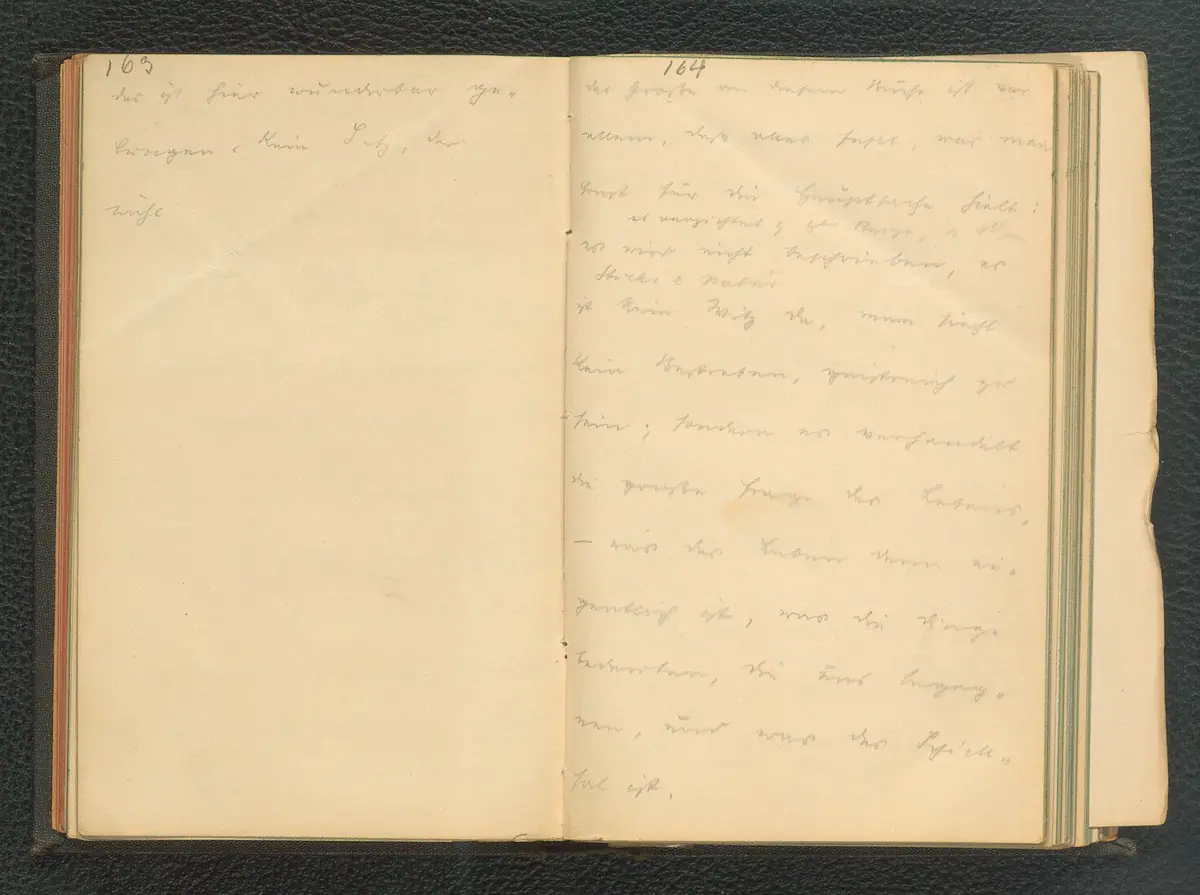 163
das ist hier wunderbar ge-
lungen. Kein Satz, der
nicht
164
das Große an diesem Buche ist vor
allem, daß alles fehlt, was man
sonst für die Hauptsache hielt:
es verzichtet
es wird nicht beschrieben, es
Natur
ist kein Witz da, man sieht
kein Bestreben, geistreich zu
sein; sondern es verhandelt
die große Frage des Lebens,
– was das Leben denn ei-
gentlich ist, was die Dinge
bedeuten, die uns begeg-
nen, und was das Schick-
sal ist.